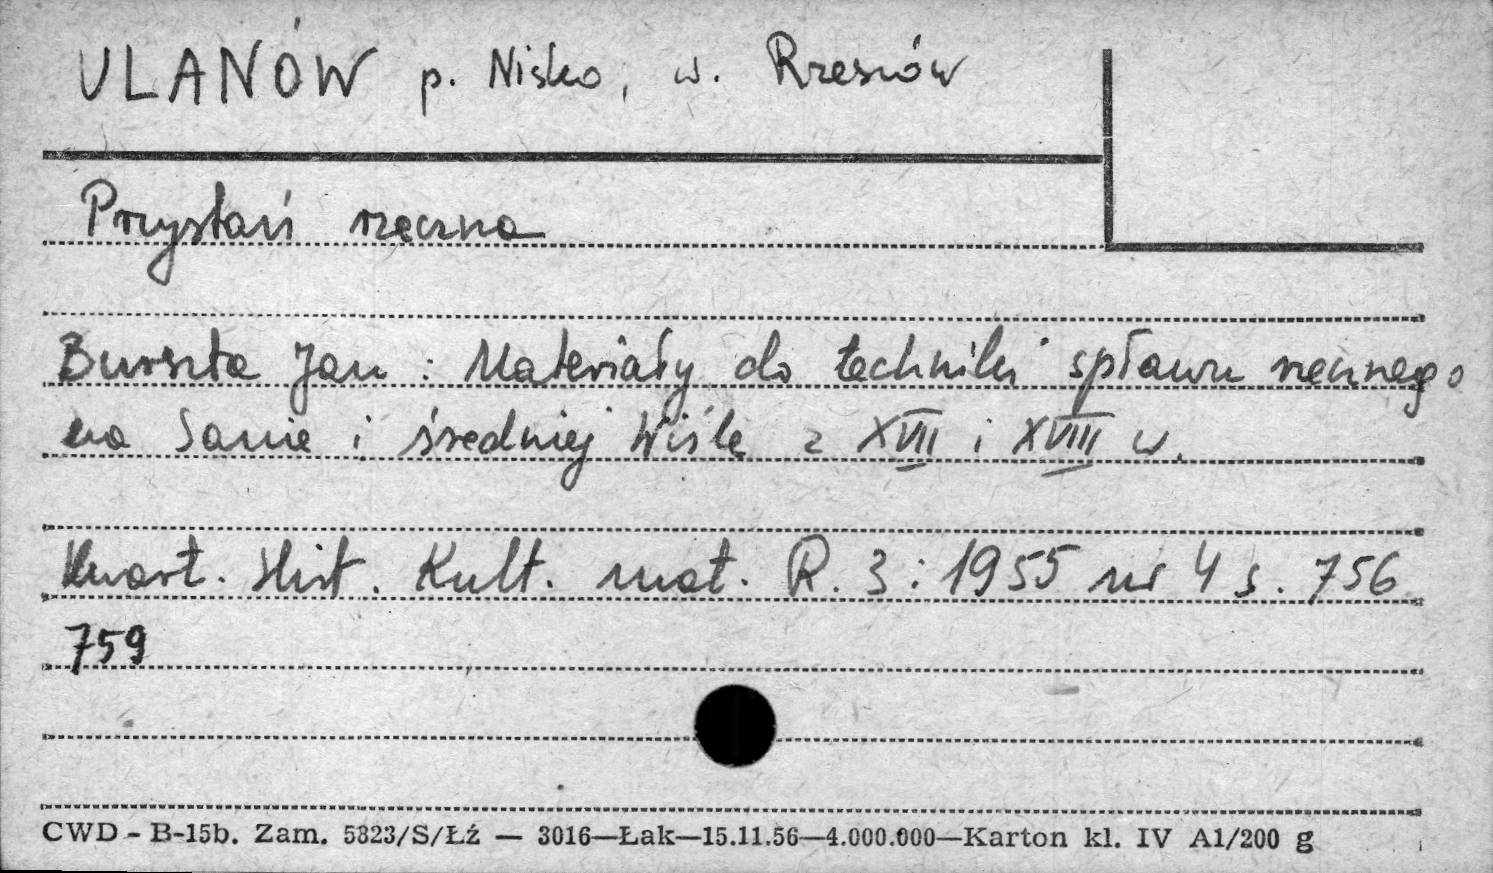 ULANÓW p. Nisko, w. Rzeszów
Przystań rzeczna
Burszta Jan : Materiały do techniki spławu rzecznego
na Sanie i średniej Wiśle z XVII i XVIII w.
Kwart. Hist. Kult. mat. R. 3 : 1955 nr 4 s. 756
759
CWD - B-15b. Zam. 5323/S/Łź — 3016—Łak—15.11.56—4.000.000—Karton kl. IV A1/200 g